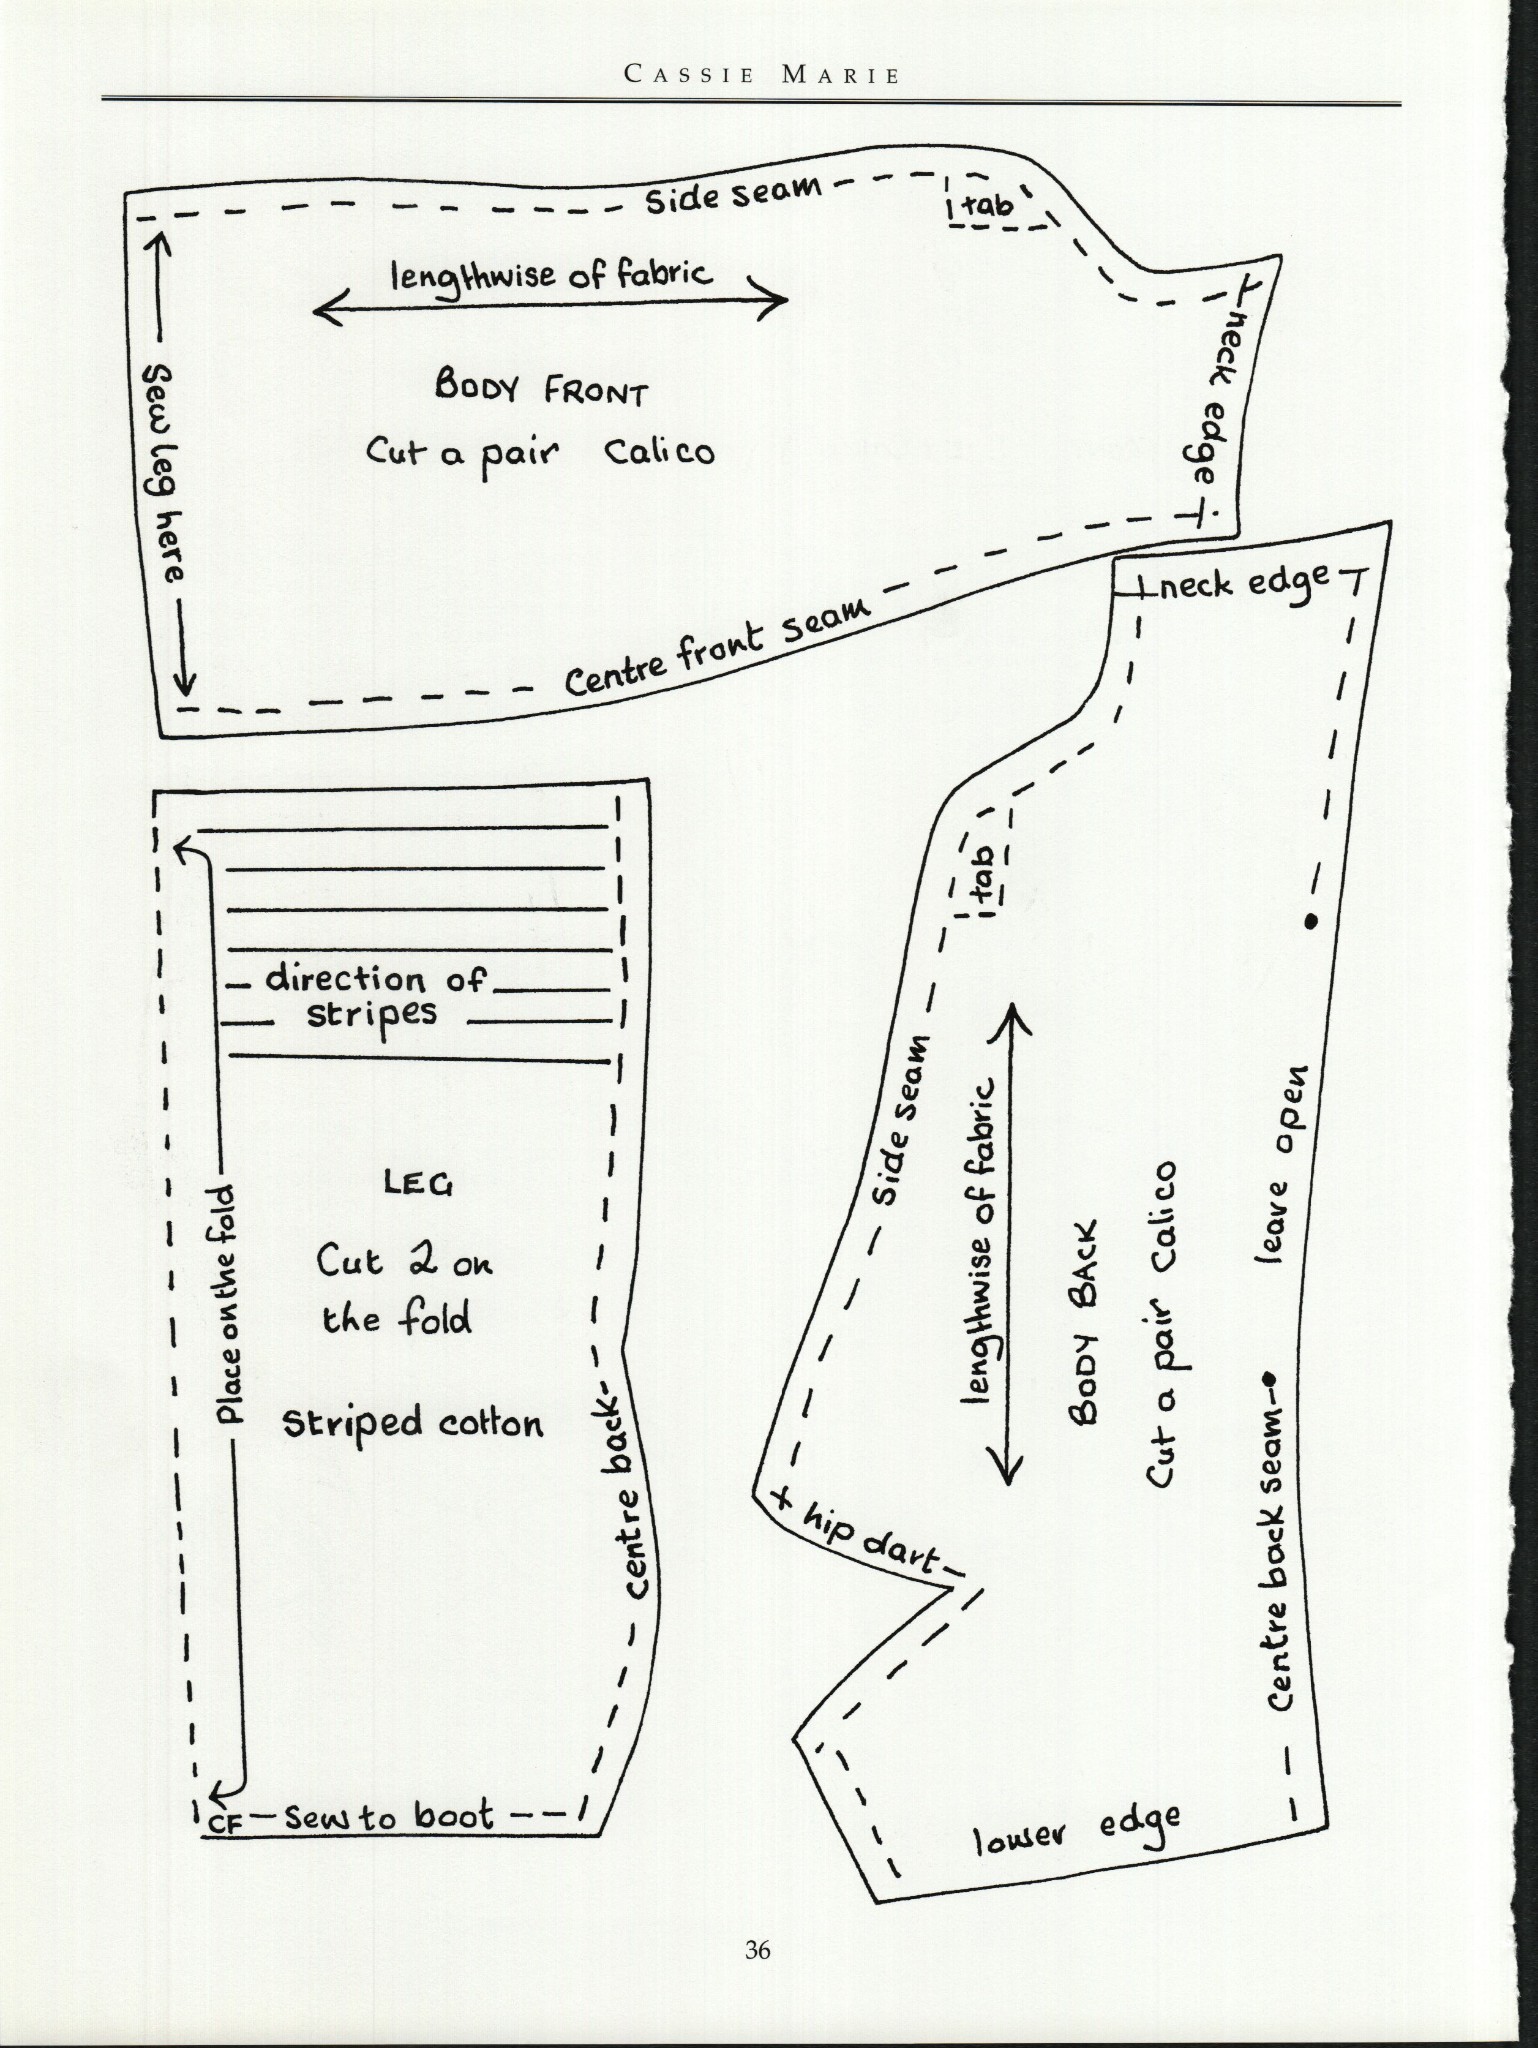 CASSIE MARIE
Side seam
tab
lengthwise of fabric
neck edge
BODY FRONT
Cut a pair Calico
Sew leg here
Centre front seam
neck edge
tab
direction of
stripes
Side seam
lengthwise of fabric
leave open
LEG
Place on the fold
Cut 2 on
the fold
BODY BACK
Cut a pair Calico
Striped cotton
centre back
hip dart
Centre back seam
CF Sew to boot
lower edge
36